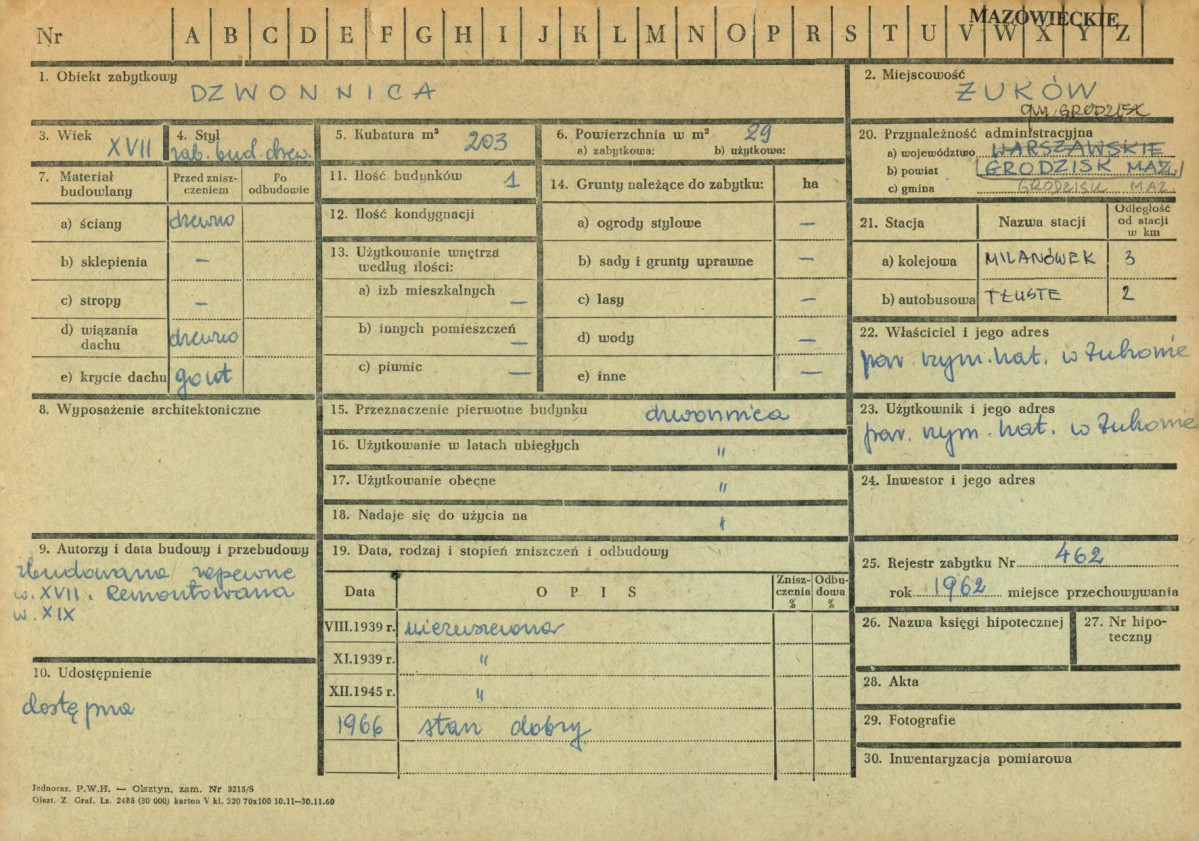 MAZOWIECKIE
Nr A B C D E F G H I J K L M N O P R S T U V W X Y Z
1. Obiekt zabytkowy
DZWONNICA
2. Miejscowość
ŻUKÓW
gm. GRODZISK
3. Wiek
XVII
4. Styl
zab. bud. drew.
5. Kubatura m³ 203
6. Powierzchnia w m² 29
a) zabytkowa: b) użytkowa:
20. Przynależność administracyjna
a) województwo WARSZAWSKIE
b) powiat GRODZISK MAZ.
c) gmina GRODZISK MAZ.
7. Materiał budowlany
Przed zniszczeniem
Po odbudowie
a) ściany drewno
b) sklepienia —
c) stropy —
d) wiązania dachu drewno
e) krycie dachu gont
11. Ilość budynków 1
12. Ilość kondygnacji
13. Użytkowanie wnętrza według ilości:
a) izb mieszkalnych —
b) innych pomieszczeń —
c) piwnic —
14. Grunty należące do zabytku: ha
a) ogrody stylowe —
b) sady i grunty uprawne —
c) lasy —
d) wody —
e) inne —
21. Stacja Nazwa stacji Odległość od stacji w km
a) kolejowa MILANÓWEK 3
b) autobusowa TŁUSTE 2
22. Właściciel i jego adres
par. rzym. kat. w Żukowie
8. Wyposażenie architektoniczne
15. Przeznaczenie pierwotne budynku dzwonnica
16. Użytkowanie w latach ubiegłych "
17. Użytkowanie obecne "
18. Nadaje się do użycia na "
23. Użytkownik i jego adres
par. rzym. kat. w Żukowie
24. Inwestor i jego adres
9. Autorzy i data budowy i przebudowy
zbudowana zapewne
w. XVII. Remontowana
w. XIX
19. Data, rodzaj i stopień zniszczeń i odbudowy
Data OPIS Zniszczenia % Odbudowa %
VIII.1939 r. niezniszczona
XI.1939 r. "
XII.1945 r. "
1966 stan dobry
25. Rejestr zabytku Nr 462
rok 1962 miejsce przechowywania
26. Nazwa księgi hipotecznej
27. Nr hipoteczny
10. Udostępnienie
dostępna
28. Akta
29. Fotografie
30. Inwentaryzacja pomiarowa
Jednoraz. P.W.H. — Olsztyn, zam. Nr 3215/S
Olszt. Z. Graf. Lz. 2486 (30 000) karton V kl. 220 70x100 10.11—30.11.60